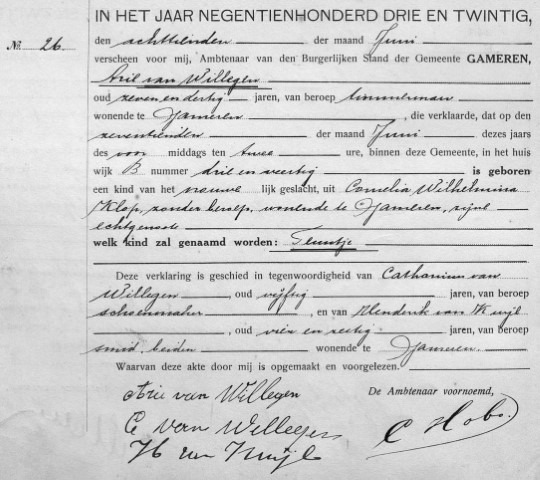 IN HET JAAR NEGENTIENHONDERD DRIE EN TWINTIG,
No. 26
den achttienden der maand Juni
verscheen voor mij, Ambtenaar van den Burgerlijken Stand der Gemeente GAMEREN,
Arie van Willegen
oud zeven en dertig jaren, van beroep timmerman
wonende te Gameren, die verklaarde, dat op den
zeventienden der maand Juni dezes jaars
des voor middags ten twee ure, binnen deze Gemeente, in het huis
wijk B nummer drie en veertig is geboren
een kind van het vrouwe lijk geslacht, uit Cornelia Wilhelmina
Klop, zonder beroep, wonende te Gameren, zijne
echtgenoote
welk kind zal genaamd worden: Teuntje
Deze verklaring is geschied in tegenwoordigheid van Catharinus van
Willegen, oud vijftig jaren, van beroep
schoenmaker, en van Hendrik van Kuijl
, oud vier en zestig jaren, van beroep
smid, beiden wonende te Gameren.
Waarvan deze akte door mij is opgemaakt en voorgelezen.
Arie van Willegen De Ambtenaar voornoemd,
C van Willegen C Hobo.
H van Kuijl